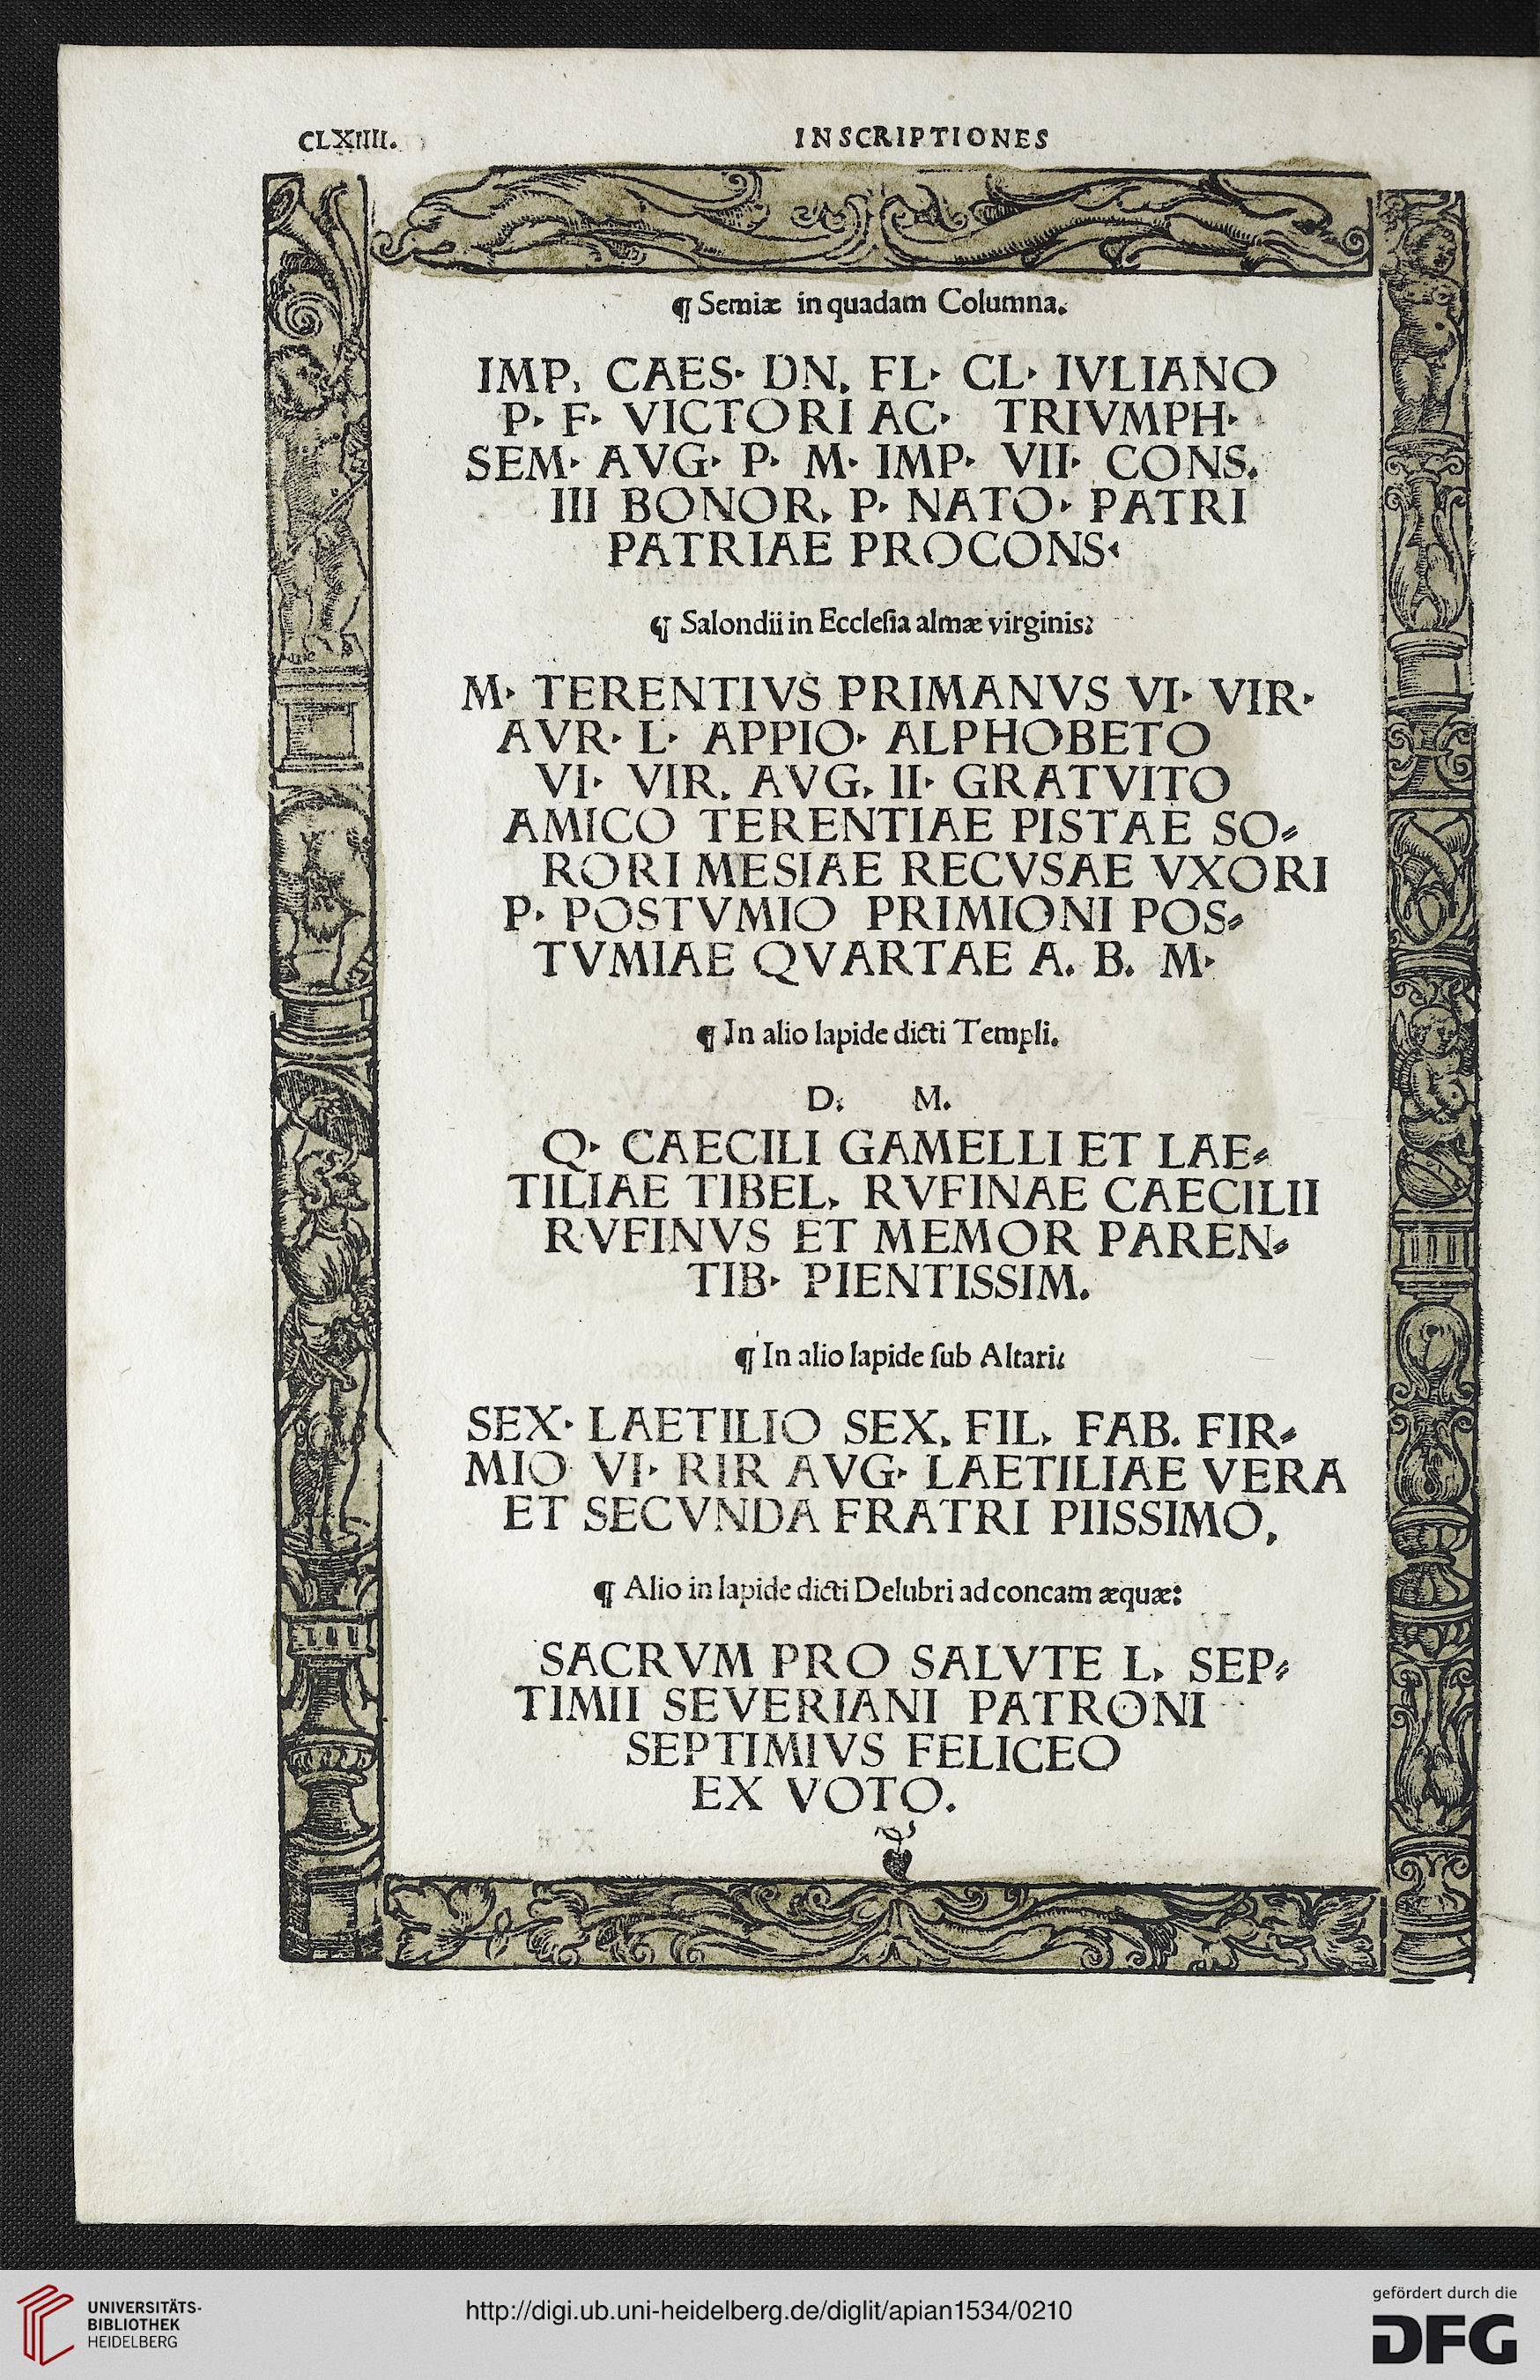 CLXIIII.
INSCRIPTIONES
¶ Semiæ in quadam Columna.
IMP. CAES· DN. FL· CL· IVLIANO
P· F· VICTORI AC· TRIVMPH·
SEM· AVG· P· M· IMP· VII· CONS.
III BONOR. P· NATO· PATRI
PATRIAE PROCONS·
¶ Salondii in Eccleſia almæ virginis:
M· TERENTIVS PRIMANVS VI· VIR·
AVR· L· APPIO· ALPHOBETO
VI· VIR. AVG. II· GRATVITO
AMICO TERENTIAE PISTAE SO⸗
RORI MESIAE RECVSAE VXORI
P· POSTVMIO PRIMIONI POS⸗
TVMIAE QVARTAE A. B. M·
¶ In alio lapide dicti Templi.
D. M.
Q· CAECILI GAMELLI ET LAE⸗
TILIAE TIBEL. RVFINAE CAECILII
RVFINVS ET MEMOR PAREN⸗
TIB· PIENTISSIM.
¶ In alio lapide ſub Altari:
SEX· LAETILIO SEX. FIL. FAB. FIR⸗
MIO VI· RIR AVG· LAETILIAE VERA
ET SECVNDA FRATRI PIISSIMO.
¶ Alio in lapide dicti Delubri ad concam æquæ:
SACRVM PRO SALVTE L. SEP⸗
TIMII SEVERIANI PATRONI
SEPTIMIVS FELICEO
EX VOTO.
UNIVERSITÄTS-
BIBLIOTHEK
HEIDELBERG
http://digi.ub.uni-heidelberg.de/diglit/apian1534/0210
gefördert durch die
DFG